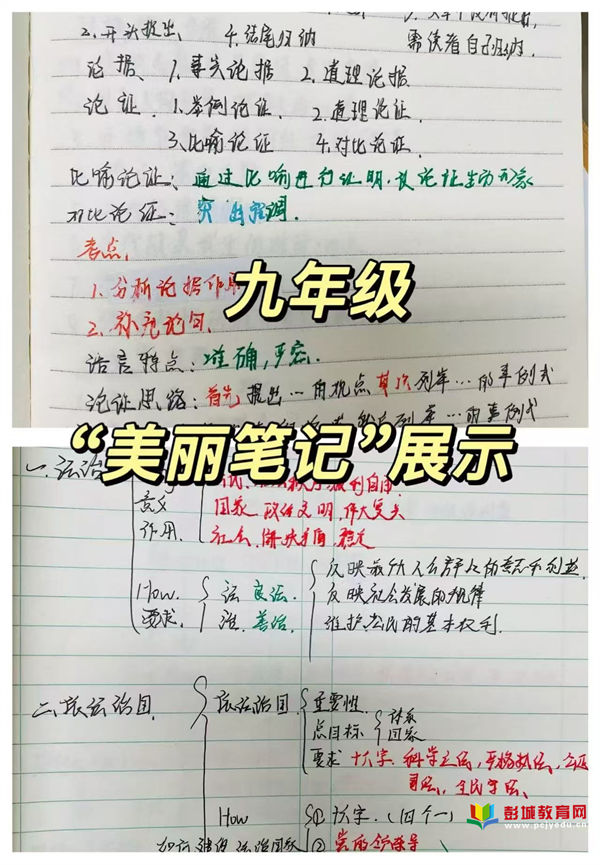 2. 开头提出、 4. 结尾归纳
需读者自己归纳.
论据、 1. 事实论据 2. 道理论据
论证. 1. 举例论证. 2. 道理论证.
3. 比喻论证 4. 对比论证.
比喻论证: 通过比喻进行证明,使论证生动形象
对比论证: 突出强调.
考点,
1. 分析论据作用
九年级
2. 补充论句.
语言特点: 准确,严密.
论证思路: 首先提出…的观点其次列举…的事例或
列举…的事例或
“美丽笔记”展示
一.法治
意义
国家 政治文明,伟大复兴
作用.
社会, 解决矛盾,稳定
反映最广大人民群众的意志和利益.
How 法 良法.
反映社会发展的规律
要求. 治. 善治.
维护公民的基本权利.
二. 依法治国. 依法治国 重要性.
总目标 体系
国家
要求 十六字 科学立法,严格执法,公正
司法,全民守法.
How ① 16字. (四个一)
如何建设法治国家 ②
彭城教育网
www.pcjyedu.cn